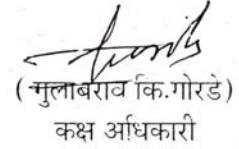 ( गुलाबराव कि.गोरडे)
कक्ष अधिकारी